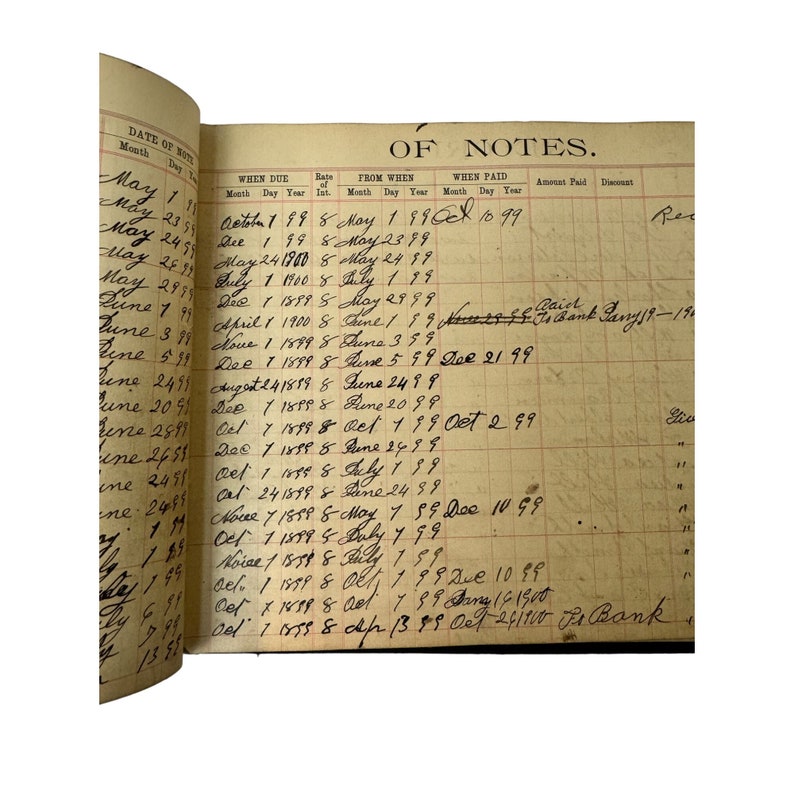 DATE OF NOTE
Month Day Year
May 1 99
May 23 99
May 24 99
May 26 99
May 29 99
June 1 99
June 3 99
June 5 99
June 24 99
June 20 99
June 28 99
June 26 99
June 24 99
June 24 99
1 99
July 1 99
July 1 99
July 6 99
7 99
13 99
OF NOTES.
WHEN DUE Rate of Int. FROM WHEN WHEN PAID Amount Paid Discount
Month Day Year Month Day Year Month Day Year
October 1 99 8 May 1 99 Oct 10 99 Rec
Dec 1 99 8 May 23 99
May 24 1900 8 May 24 99
July 1 1900 8 July 1 99
Dec 1 1899 8 May 29 99
April 1 1900 8 June 1 99 Nove 29 99 Paid To Bank Jany 19 - 190
Nove 1 1899 8 June 3 99
Dec 1 1899 8 June 5 99 Dec 21 99
Augest 24 1899 8 June 24 99
Dec 1 1899 8 June 20 99
Oct 7 1899 8 Oct 7 99 Oct 2 99 Giv
Dec 7 1899 8 June 26 99 "
Oct 1 1899 8 July 1 99 "
Oct 24 1899 8 June 24 99 "
Nove 7 1899 8 May 7 99 Dec 10 99 "
Oct 7 1899 8 July 7 99 "
Nove 1 1899 8 July 1 99 "
Oct 1 1899 8 Oct 1 99 Dec 10 99 "
Oct 7 1899 8 Oct 7 99 Jany 16 1900
Oct 7 1899 8 Apr 13 99 Oct 26 1900 To Bank "